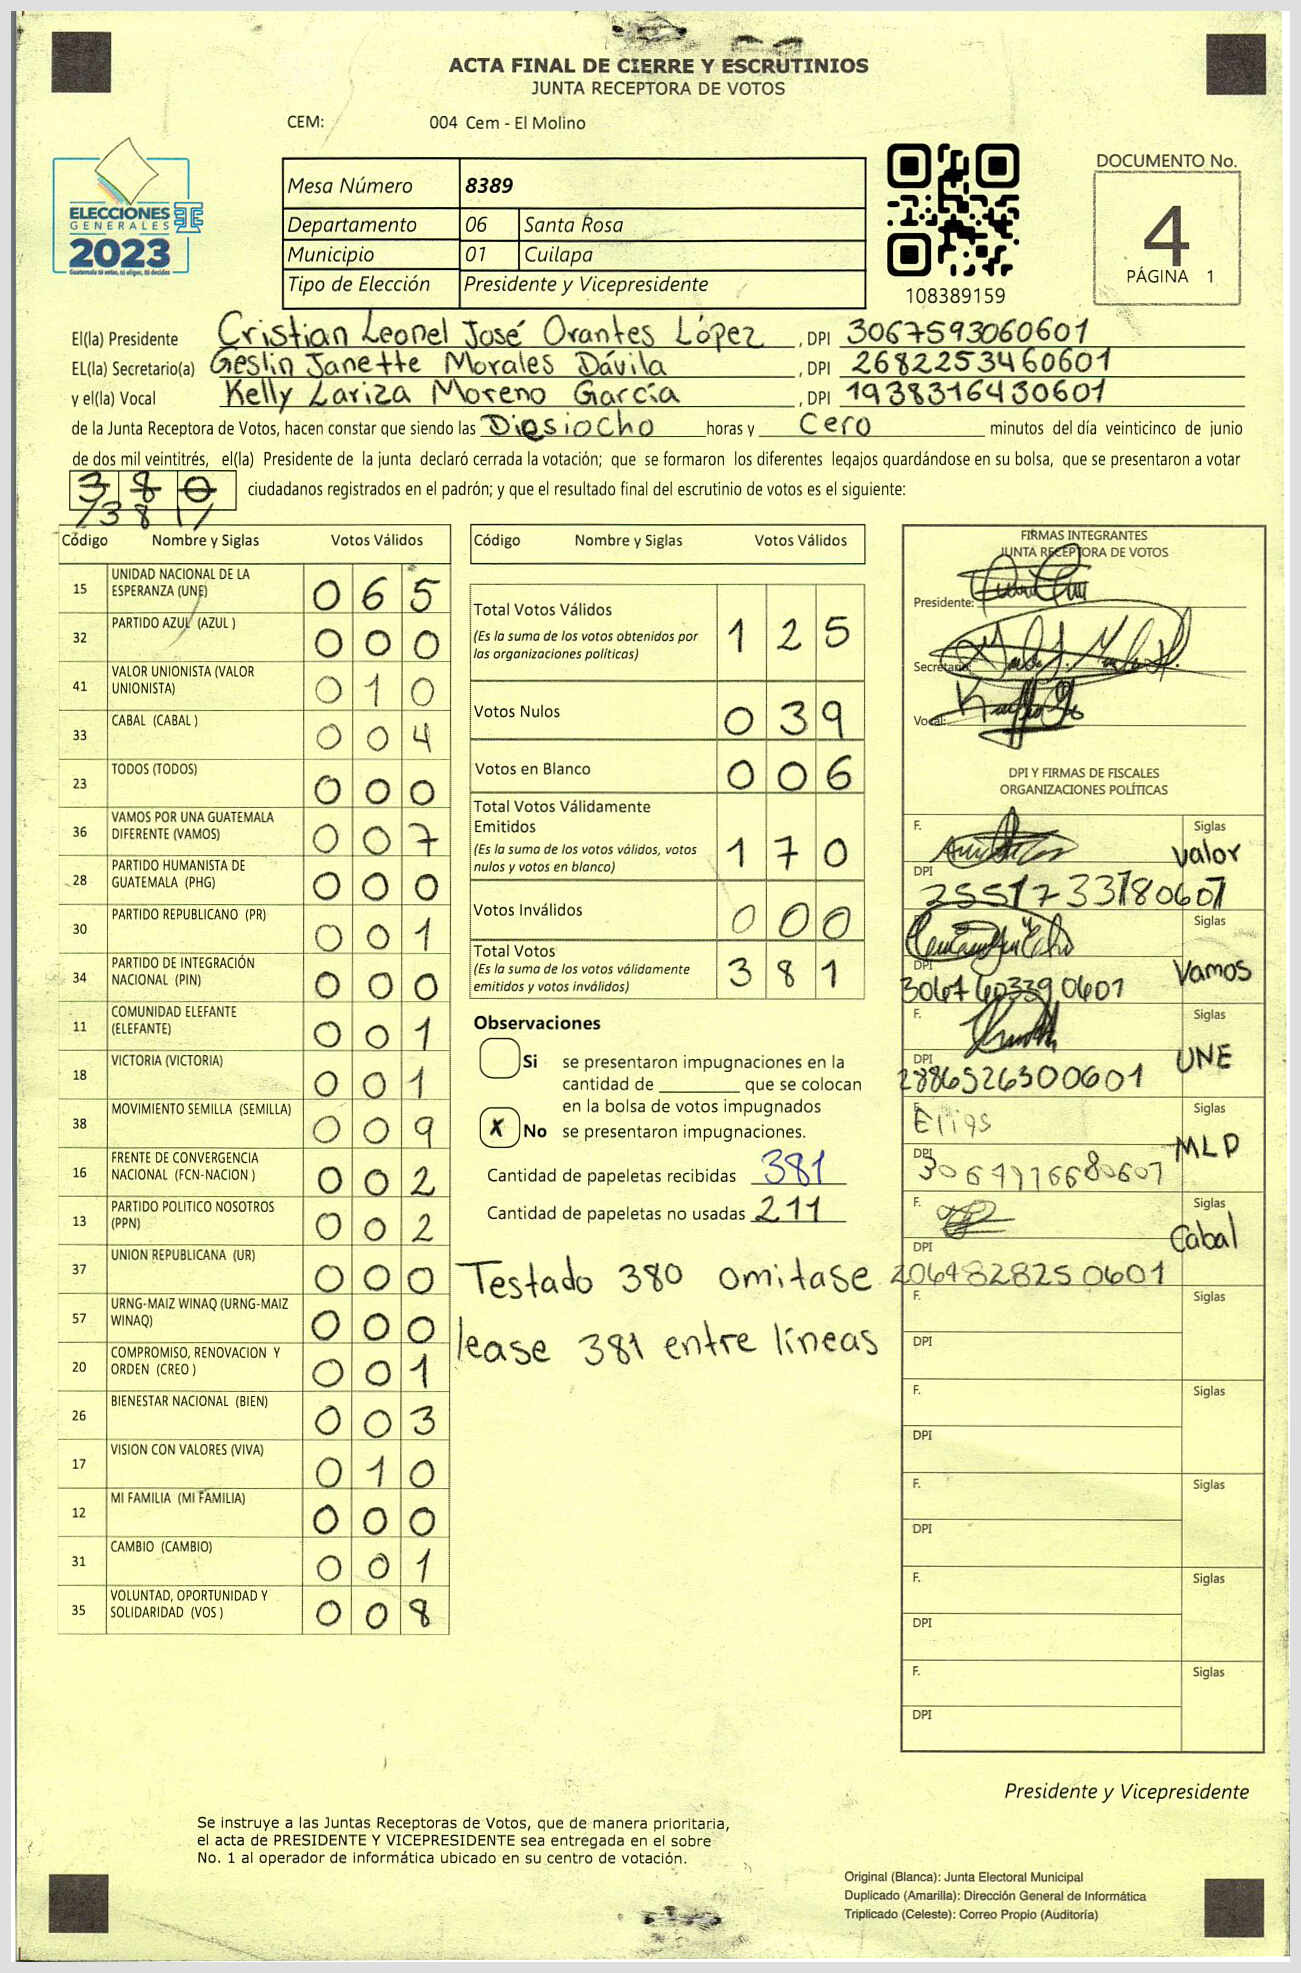 ACTA FINAL DE CIERRE Y ESCRUTINIOS
JUNTA RECEPTORA DE VOTOS
CEM: 004 Cem - El Molino
ELECCIONES
GENERALES
2023
Guatemala tú votas, tú eliges, tú decides
Mesa Número 8389
Departamento 06 Santa Rosa
Municipio 01 Cuilapa
Tipo de Elección Presidente y Vicepresidente
108389159
DOCUMENTO No.
4
PÁGINA 1
El(la) Presidente Cristian Leonel José Orantes López, DPI 3067593060601
EL(la) Secretario(a) Geslin Janette Morales Dávila, DPI 2682253460601
y el(la) Vocal Kelly Lariza Moreno García, DPI 1938316430601
de la Junta Receptora de Votos, hacen constar que siendo las Diesiocho horas y Cero minutos del día veinticinco de junio
de dos mil veintitrés, el(la) Presidente de la junta declaró cerrada la votación; que se formaron los diferentes legajos guardándose en su bolsa, que se presentaron a votar
380 ciudadanos registrados en el padrón; y que el resultado final del escrutinio de votos es el siguiente:
/381/
Código Nombre y Siglas Votos Válidos
15 UNIDAD NACIONAL DE LA ESPERANZA (UNE) 0 6 5
32 PARTIDO AZUL (AZUL ) 0 0 0
41 VALOR UNIONISTA (VALOR UNIONISTA) 0 1 0
33 CABAL (CABAL ) 0 0 4
23 TODOS (TODOS) 0 0 0
36 VAMOS POR UNA GUATEMALA DIFERENTE (VAMOS) 0 0 7
28 PARTIDO HUMANISTA DE GUATEMALA (PHG) 0 0 0
30 PARTIDO REPUBLICANO (PR) 0 0 1
34 PARTIDO DE INTEGRACIÓN NACIONAL (PIN) 0 0 0
11 COMUNIDAD ELEFANTE (ELEFANTE) 0 0 1
18 VICTORIA (VICTORIA) 0 0 1
38 MOVIMIENTO SEMILLA (SEMILLA) 0 0 9
16 FRENTE DE CONVERGENCIA NACIONAL (FCN-NACION ) 0 0 2
13 PARTIDO POLITICO NOSOTROS (PPN) 0 0 2
37 UNION REPUBLICANA (UR) 0 0 0
57 URNG-MAIZ WINAQ (URNG-MAIZ WINAQ) 0 0 0
20 COMPROMISO, RENOVACION Y ORDEN (CREO ) 0 0 1
26 BIENESTAR NACIONAL (BIEN) 0 0 3
17 VISION CON VALORES (VIVA) 0 1 0
12 MI FAMILIA (MI FAMILIA) 0 0 0
31 CAMBIO (CAMBIO) 0 0 1
35 VOLUNTAD, OPORTUNIDAD Y SOLIDARIDAD (VOS ) 0 0 8
Código Nombre y Siglas Votos Válidos
Total Votos Válidos 1 2 5
(Es la suma de los votos obtenidos por
las organizaciones políticas)
Votos Nulos 0 3 9
Votos en Blanco 0 0 6
Total Votos Válidamente
Emitidos 1 7 0
(Es la suma de los votos válidos, votos
nulos y votos en blanco)
Votos Inválidos 0 0 0
Total Votos 3 8 1
(Es la suma de los votos válidamente
emitidos y votos inválidos)
Observaciones
Si se presentaron impugnaciones en la
cantidad de ________ que se colocan
en la bolsa de votos impugnados
X No se presentaron impugnaciones.
Cantidad de papeletas recibidas 381
Cantidad de papeletas no usadas 211
Testado 380 omitase
lease 381 entre líneas
FIRMAS INTEGRANTES
JUNTA RECEPTORA DE VOTOS
Presidente:
Secretario:
Vocal:
DPI Y FIRMAS DE FISCALES
ORGANIZACIONES POLÍTICAS
F. Siglas Valor
DPI 2551733780607
F. Siglas Vamos
DPI 3067603390601
F. Siglas UNE
DPI 2886526300601
F. Elias Siglas MLP
DPI
F. Siglas Cabal
DPI 2064828250601
F. Siglas
DPI
F. Siglas
DPI
F. Siglas
DPI
F. Siglas
DPI
F. Siglas
DPI
Presidente y Vicepresidente
Se instruye a las Juntas Receptoras de Votos, que de manera prioritaria,
el acta de PRESIDENTE Y VICEPRESIDENTE sea entregada en el sobre
No. 1 al operador de informática ubicado en su centro de votación.
Original (Blanca): Junta Electoral Municipal
Duplicado (Amarilla): Dirección General de Informática
Triplicado (Celeste): Correo Propio (Auditoría)